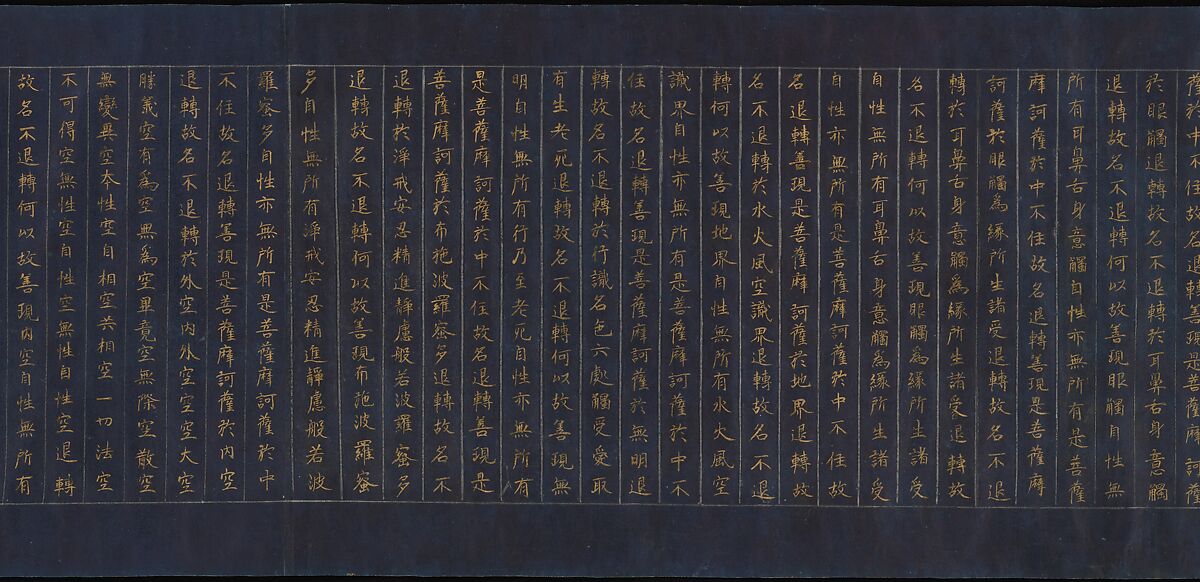 薩於中不住故名退轉善現是菩薩摩訶薩
於眼觸退轉故名不退轉於耳鼻舌身意觸
退轉故名不退轉何以故善現眼觸自性無
所有耳鼻舌身意觸自性亦無所有是菩薩
摩訶薩於中不住故名退轉善現是菩薩摩
訶薩於眼觸為緣所生諸受退轉故名不退
轉於耳鼻舌身意觸為緣所生諸受退轉故
名不退轉何以故善現眼觸為緣所生諸受
自性無所有耳鼻舌身意觸為緣所生諸受
自性亦無所有是菩薩摩訶薩於中不住故
名退轉善現是菩薩摩訶薩於地界退轉故
名不退轉於水火風空識界退轉故名不退
轉何以故善現地界自性無所有水火風空
識界自性亦無所有是菩薩摩訶薩於中不
住故名退轉善現是菩薩摩訶薩於無明退
轉故名不退轉於行識名色六處觸受愛取
有生老死退轉故名不退轉何以故善現無
明自性無所有行乃至老死自性亦無所有
是菩薩摩訶薩於中不住故名退轉善現是
菩薩摩訶薩於布施波羅蜜多退轉故名不
退轉於淨戒安忍精進靜慮般若波羅蜜多
退轉故名不退轉何以故善現布施波羅蜜
多自性無所有淨戒安忍精進靜慮般若波
羅蜜多自性亦無所有是菩薩摩訶薩於中
不住故名退轉善現是菩薩摩訶薩於內空
退轉故名不退轉於外空內外空空空大空
勝義空有為空無為空畢竟空無際空散空
無變異空本性空自相空共相空一切法空
不可得空無性空自性空無性自性空退轉
故名不退轉何以故善現內空自性無所有